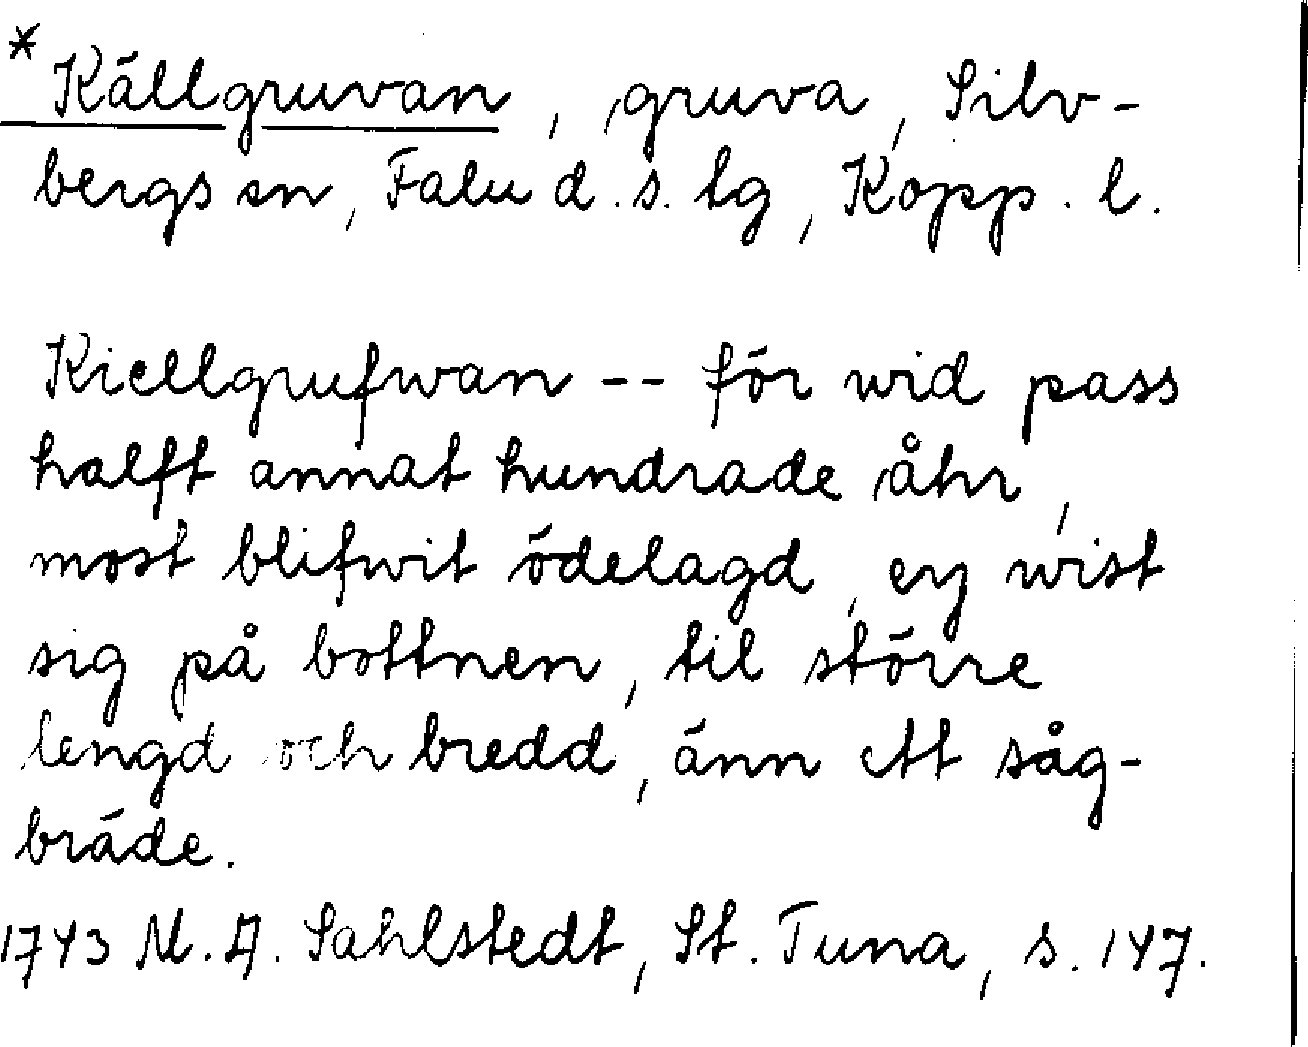 * Källgruvan, gruva, Silv-
bergs sn, Falu d. s. lg, Kopp. l.
Kiellgrufwan -- för wid pass
halft annat hundrade åhr,
most blifwit ödelagd, ey wist
sig på bottnen, til större
lengd och bredd, änn ett såg-
bräde.
1743 M. A. Sahlstedt, St. Tuna, s. 147.